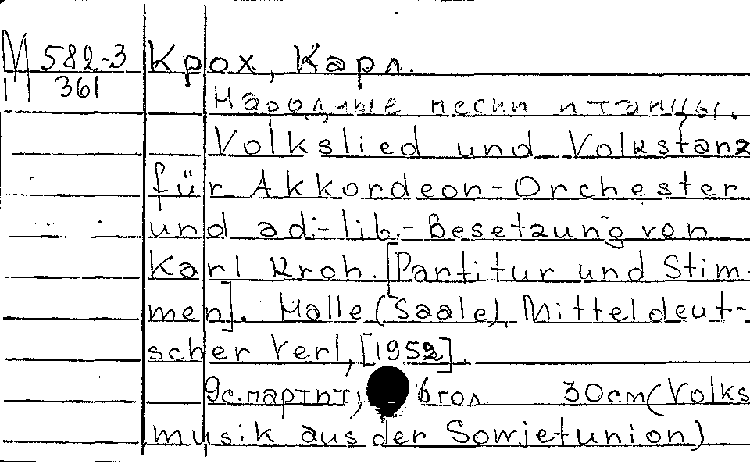 М 582-3 Крох, Карл.
361
Народные песни и танцы.
Volkslied und Volkstanz
für Akkordeon-Orchester
und ad-lib.-Besetzung von
Karl Kroh. [Partitur und Stim-
men]. Halle (Saale), Mitteldeut-
scher Verl, [1952].
9с. партит, 6гол 30cm (Volks
musik aus der Sowjetunion)